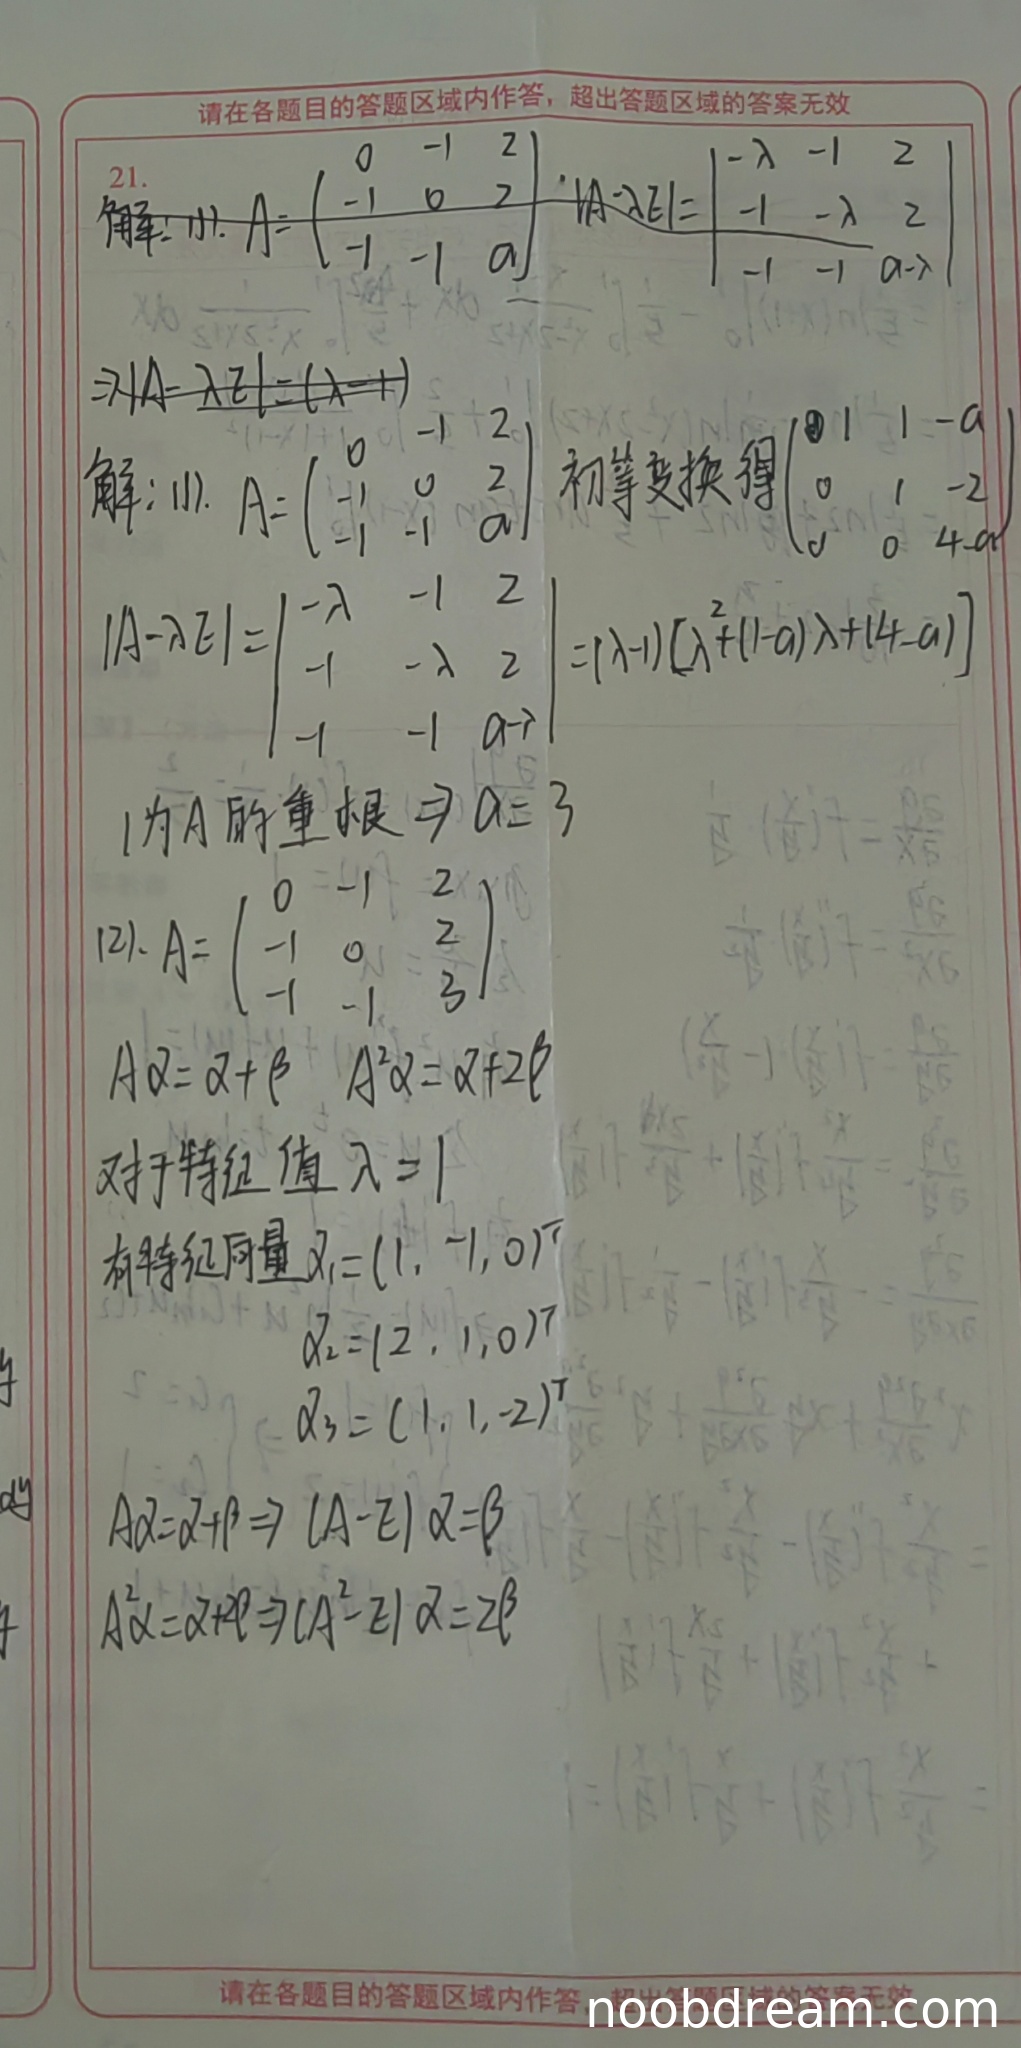 请在各题目的答题区域内作答，超出答题区域的答案无效
21.
解：(1). A = ( 0 -1 2 ; -1 0 2 ; -1 -1 a ) . |A-λE| = | -λ -1 2 ; -1 -λ 2 ; -1 -1 a-λ |
⇒ |A-λE| = (λ-1)
解：(1). A = ( 0 -1 2 ; -1 0 2 ; -1 -1 a ) 初等变换得 ( 1 1 -a ; 0 1 -2 ; 0 0 4-a )
|A-λE| = | -λ -1 2 ; -1 -λ 2 ; -1 -1 a-λ | = (λ-1)[λ²+(1-a)λ+(4-a)]
1为A的重根 ⇒ a=3
(2). A = ( 0 -1 2 ; -1 0 2 ; -1 -1 3 )
Aα=α+β A²α=α+2β
对于特征值 λ=1
有特征向量 α₁=(1, -1, 0)ᵀ
α₂=(2, 1, 0)ᵀ
α₃=(1, 1, -2)ᵀ
Aα=α+β ⇒ (A-E)α=β
A²α=α+2β ⇒ (A²-E)α=2β
请在各题目的答题区域内作答，超出答题区域的答案无效
noobdream.com